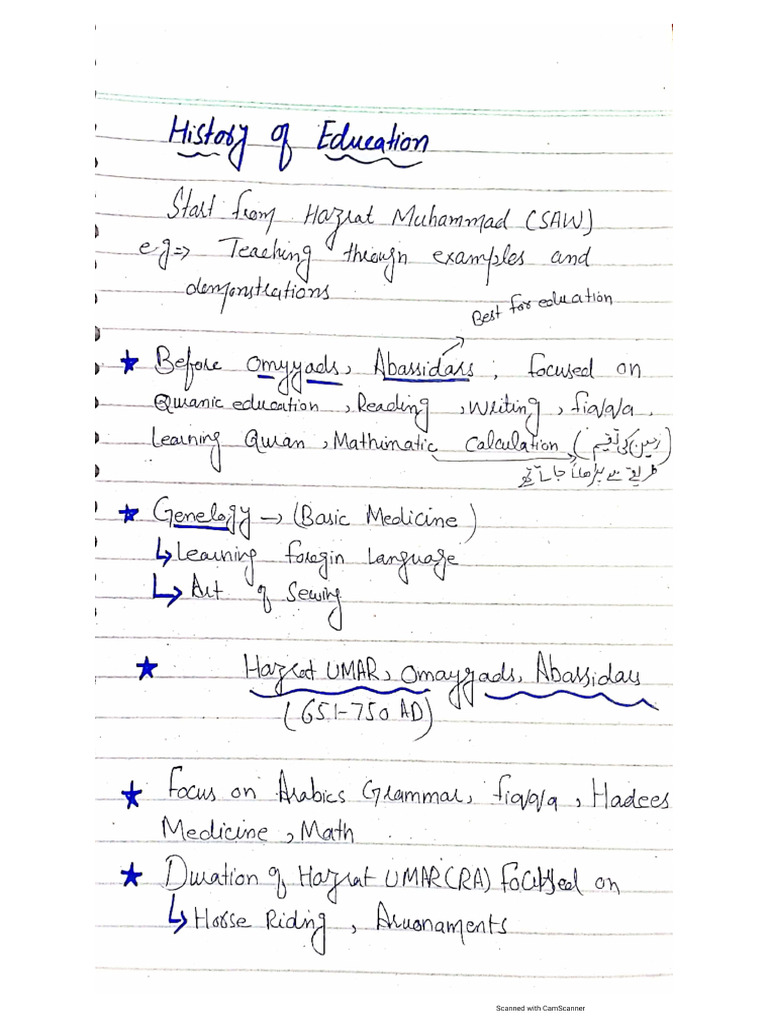 History of Education
Start from Hazrat Muhammad (SAW)
eg=> Teaching through examples and
demonstrations
Best for education
★ Before Omyyads, Abassidars, focused on
Quranic education, Reading, Writing, fiqqa,
Learning Quran, Mathimatic Calculation (زمین کی تقسیم)
طریقے سے پڑھائے جاتے تھے
★ Genelogy → (Basic Medicine)
↳ Learning foregin Language
↳ Art of Sewing
★ Hazrat UMAR, Omayyads, Abassidars
(651-750 AD)
★ Focus on Arabics Grammar, fiqqa, Hadees
Medicine, Math
★ Duration of Hazrat UMAR(RA) focused on
↳ Horse Riding,
Scanned with CamScanner